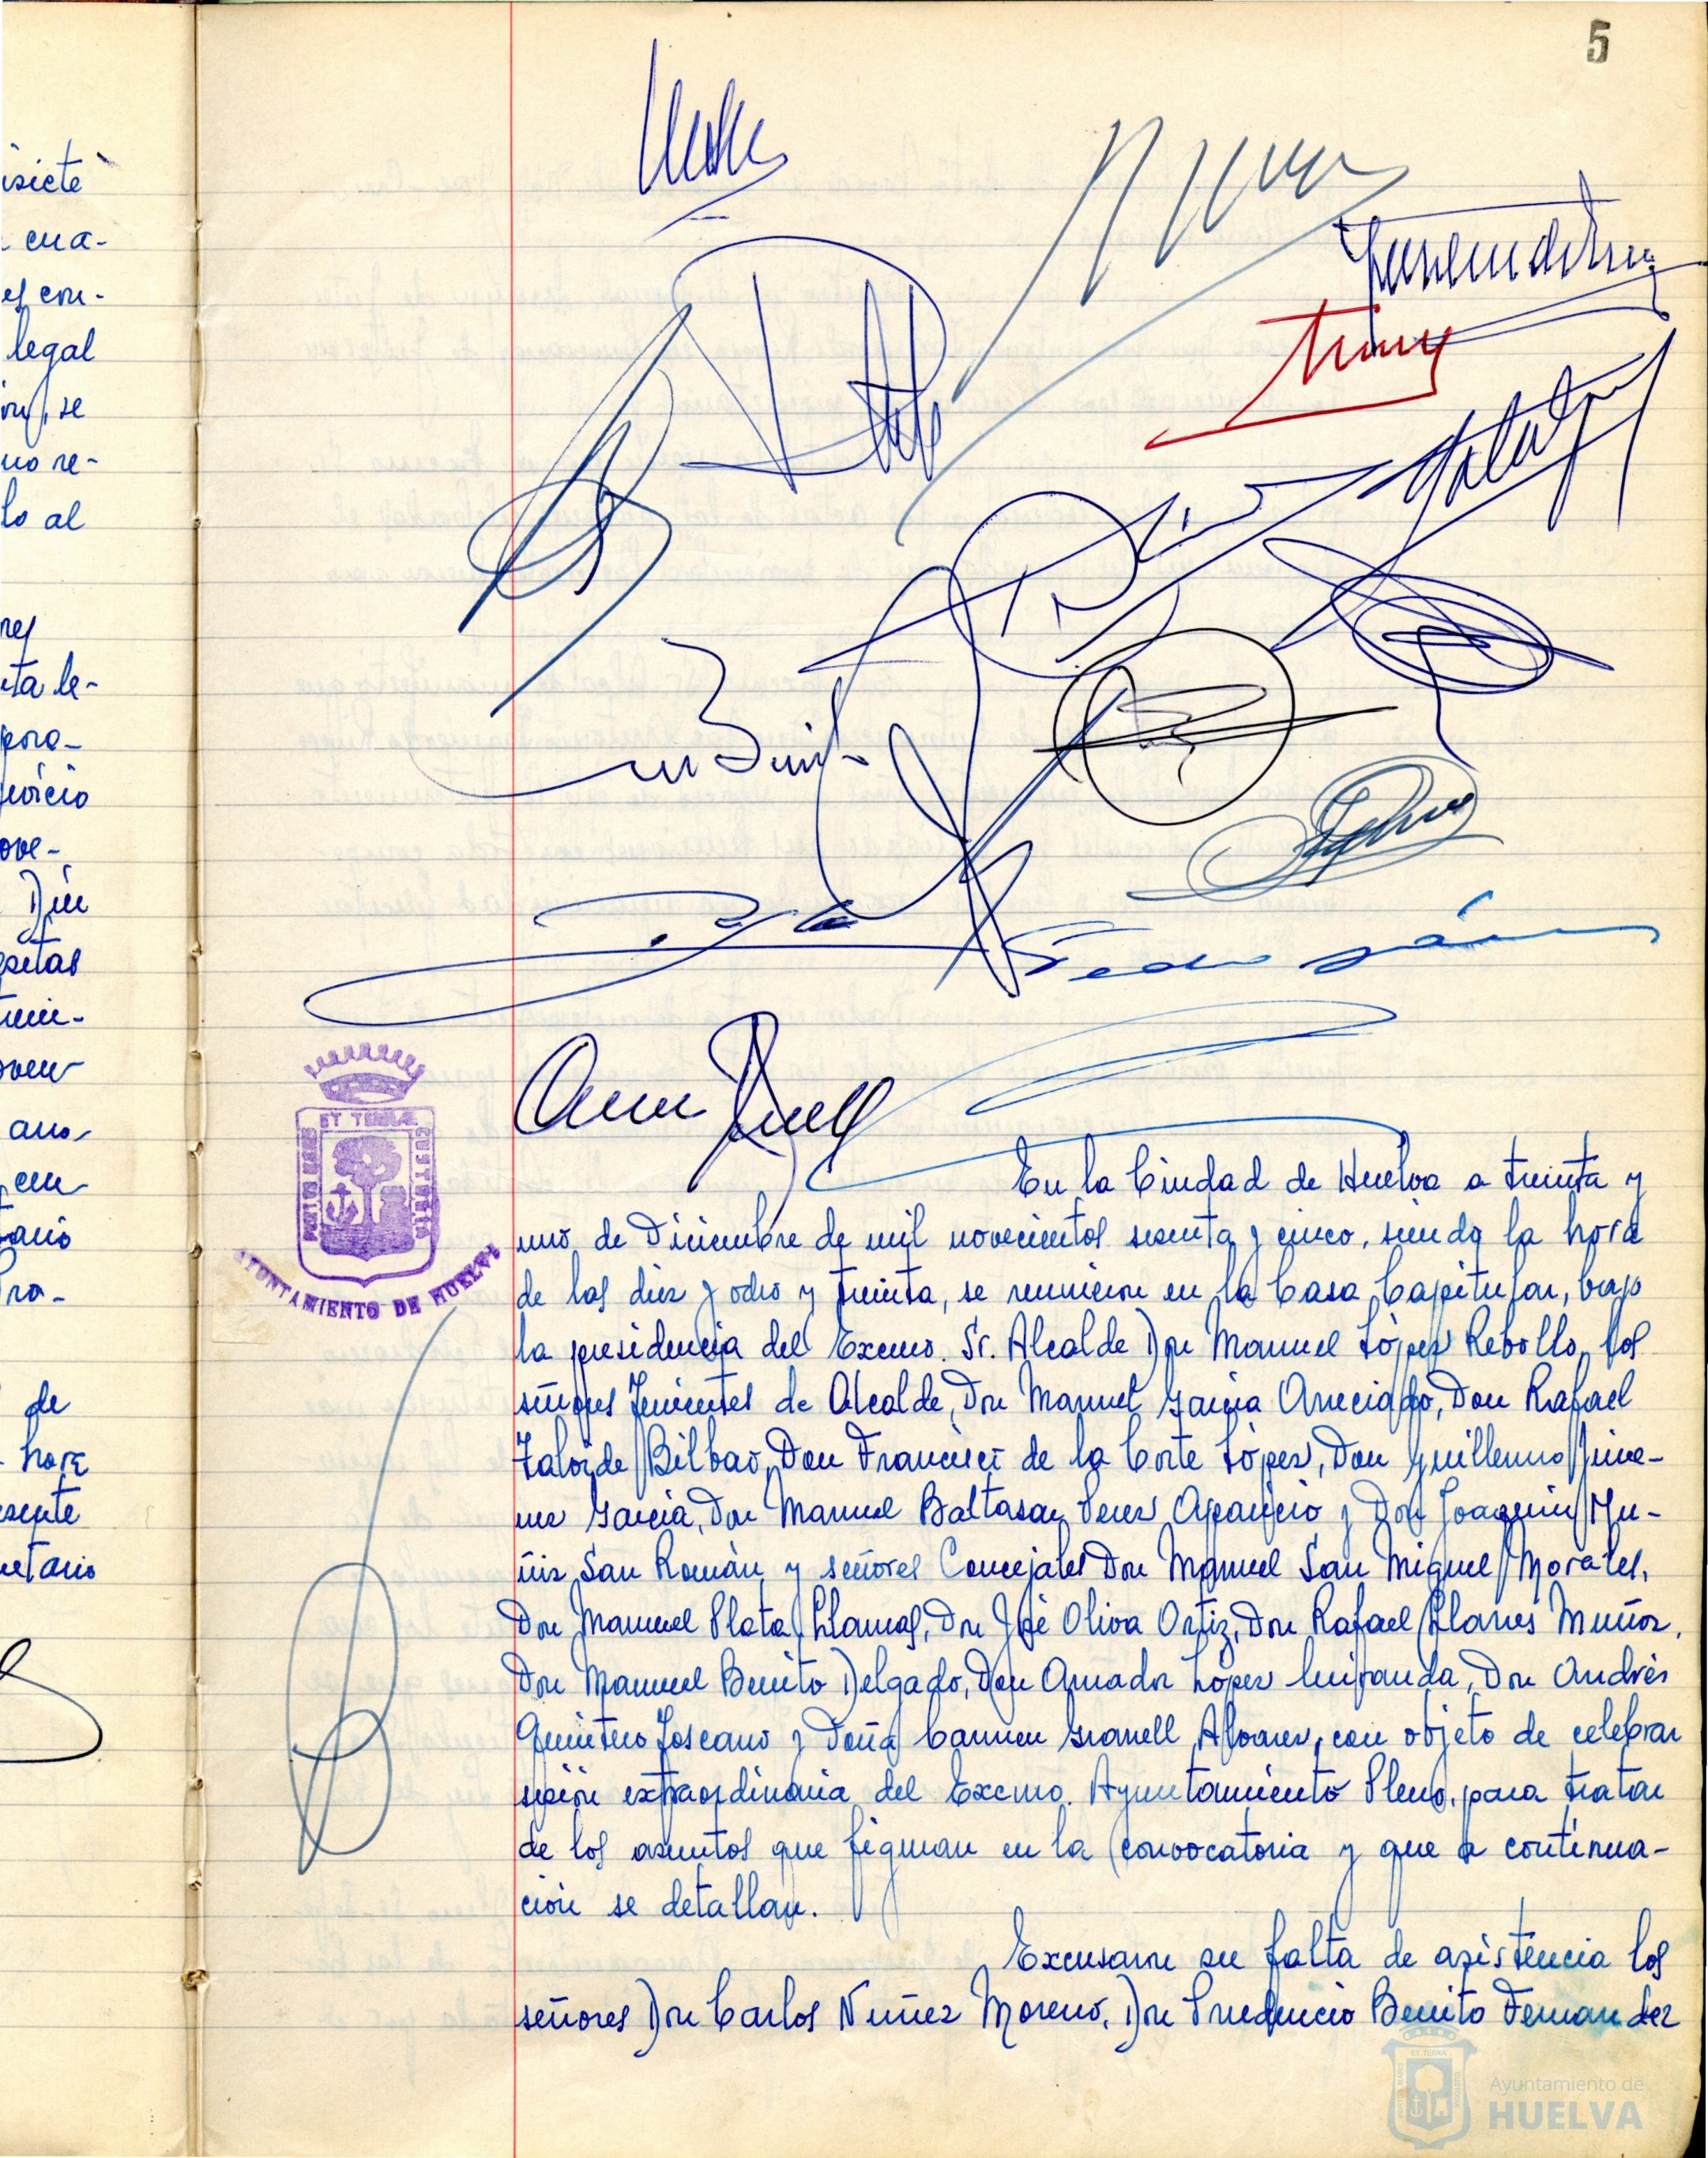 5
isiete
cua-
es con-
legal
se
no re-
lo al
res
ta le-
pora-
ove-
Din
setas
ano
en
tario
de
hora
sente
retario
Pedro
PORTUS MARIS ET TERRAE CUSTODIA
AYUNTAMIENTO DE HUELVA
En la Ciudad de Huelva a treinta y
uno de Diciembre de mil novecientos sesenta y cinco, siendo la hora
de las diez y ocho y treinta, se reunieron en la Casa Capitular, bajo
la presidencia del Excmo. Sr. Alcalde Don Manuel López Rebollo, los
señores Tenientes de Alcalde, Don Manuel García Arreciado, Don Rafael
Zalvide Bilbao, Don Francisco de la Corte López, Don Guillermo Jime-
no García, Don Manuel Baltasar Perez Aparicio y Don Joaquin Mu-
ñiz San Román, y señores Concejales Don Manuel San Miguel Morales,
Don Manuel Plata Llamas, Don José Oliva Ortiz, Don Rafael Llanes Muñoz,
Don Manuel Benito Delgado, Don Amador López Miranda, Don Andrés
Quintero Toscano y Doña Carmen Granell Alvarez, con objeto de celebrar
sesión extraordinaria del Excmo. Ayuntamiento Pleno, para tratar
de los asuntos que figuran en la convocatoria y que a continua-
ción se detallan.
Excusaron su falta de asistencia los
señores Don Carlos Nuñez Moreno, Don Prudencio Benito Fernandez
Ayuntamiento de
HUELVA